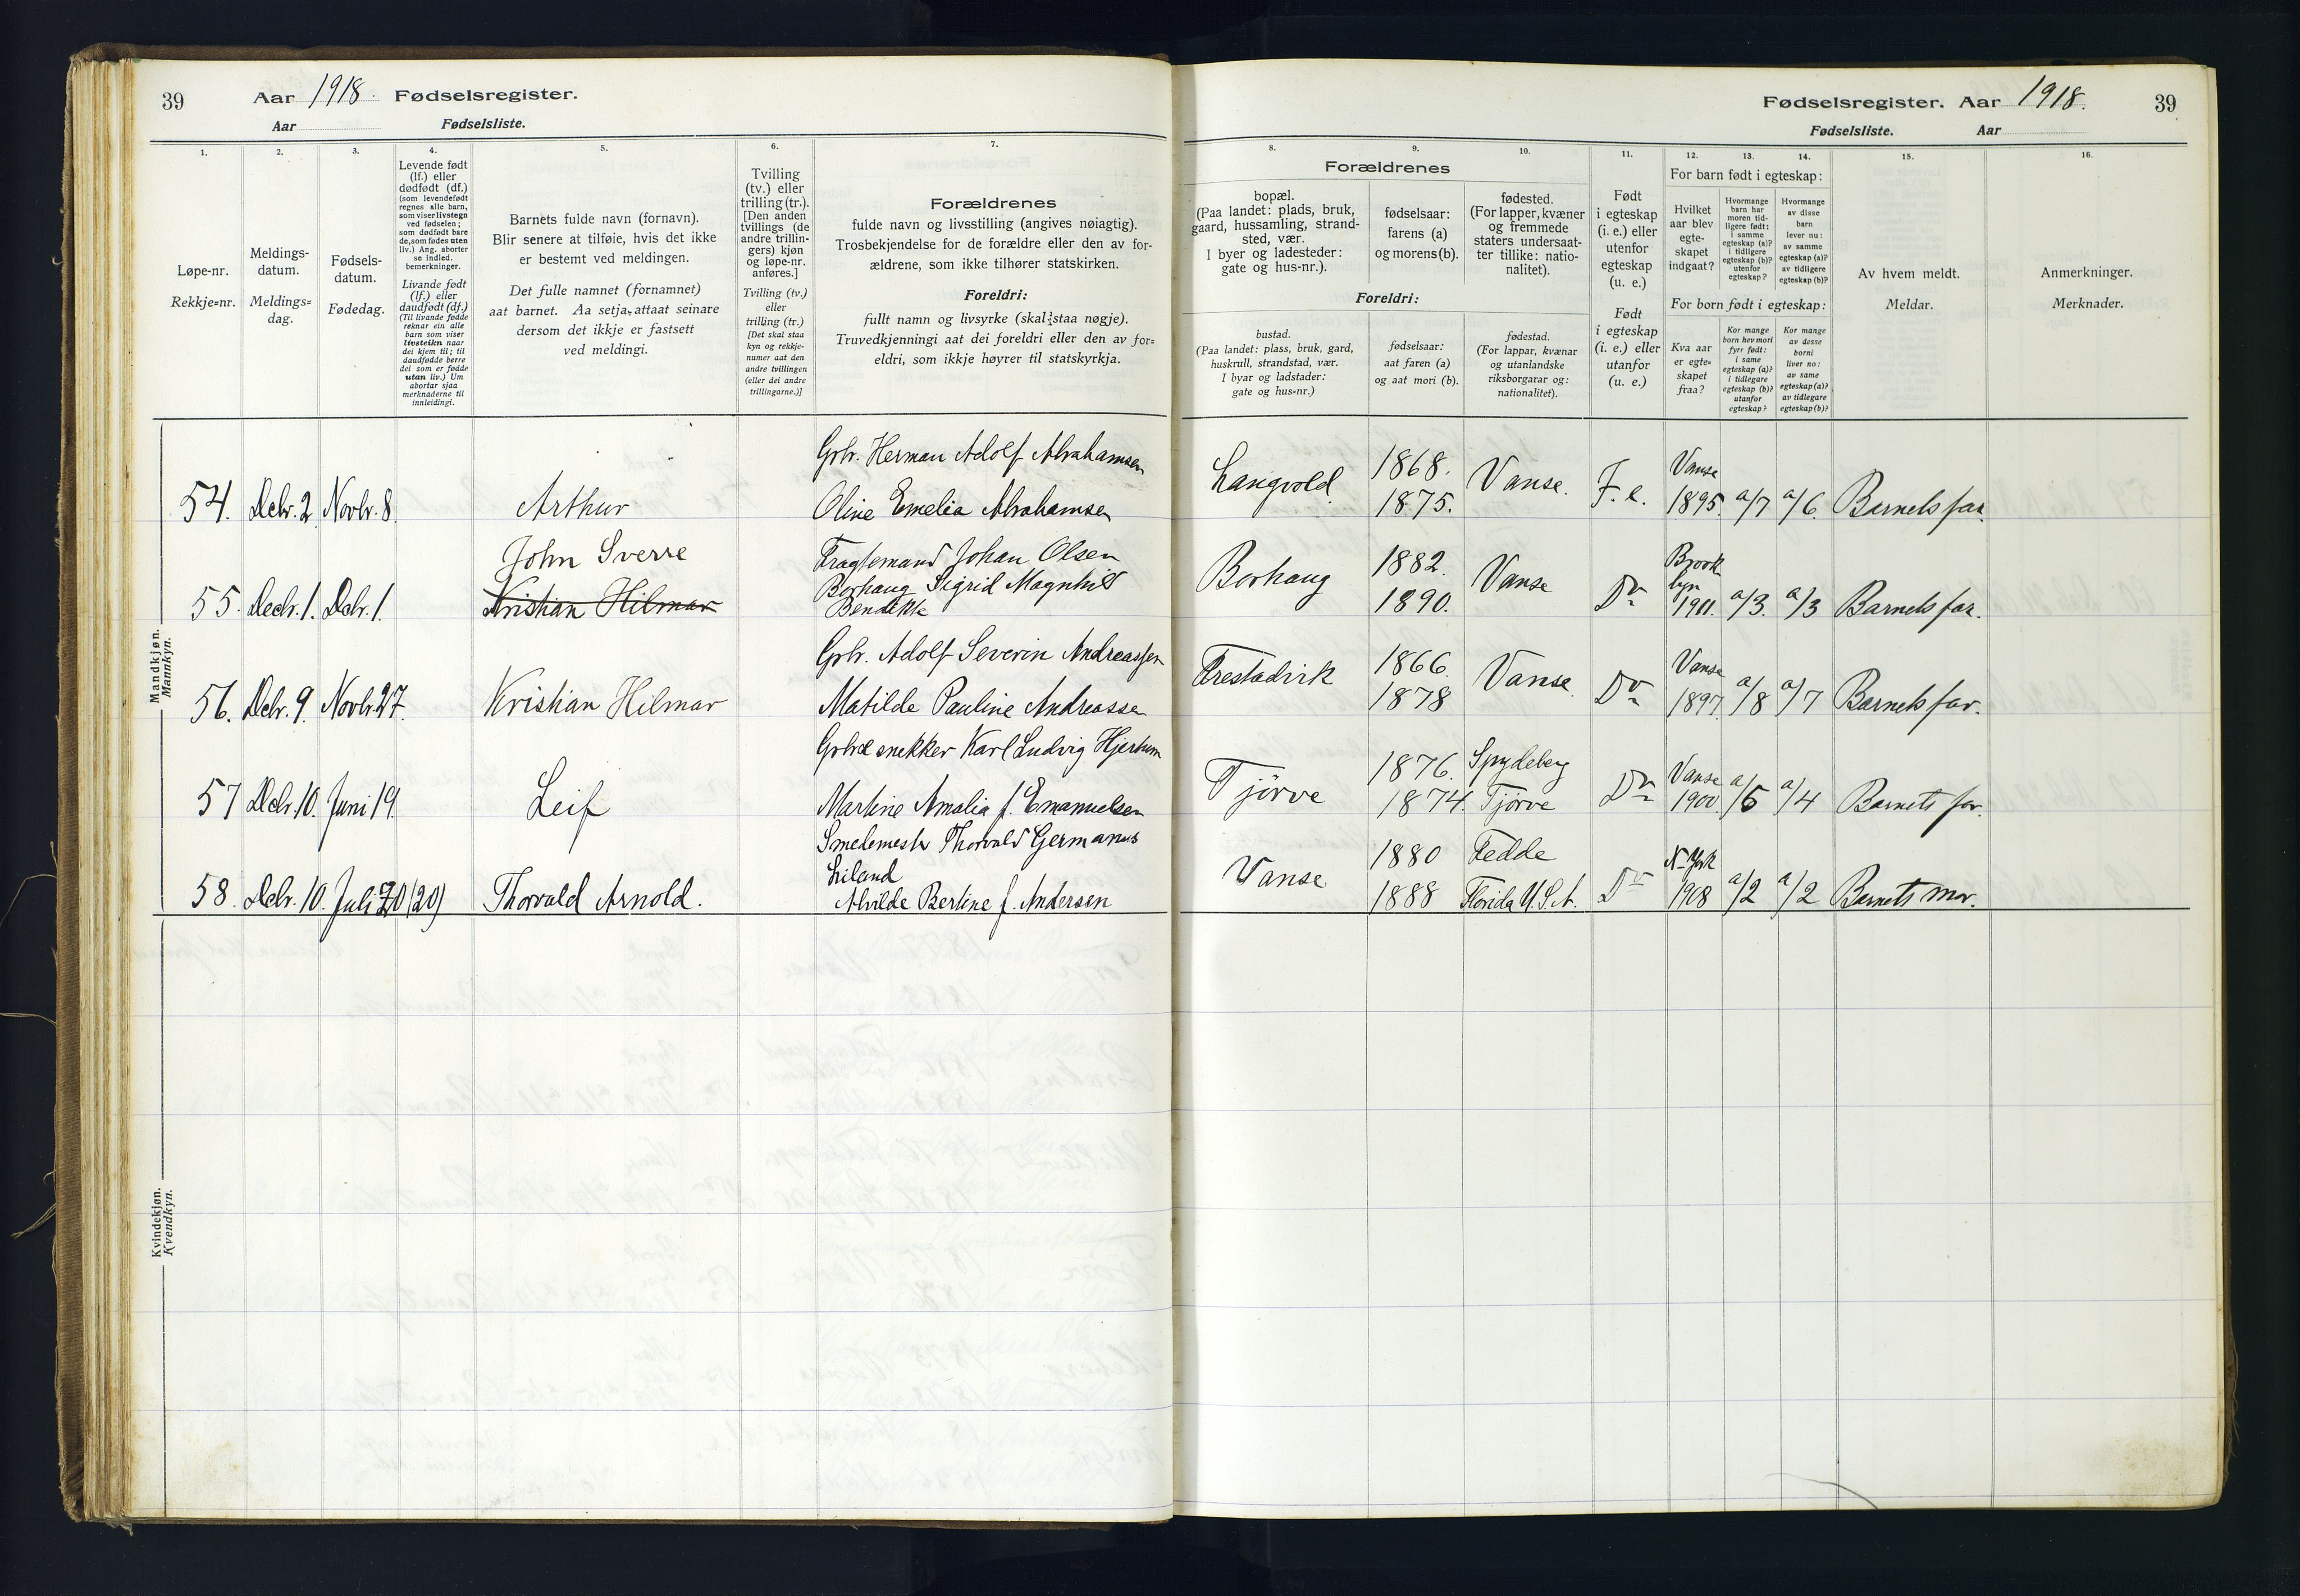 39 Aar 1918. Fødselsregister.
Aar Fødselsliste.
1. 2. 3. 4. 5. 6. 7.
Løpe-nr.
Rekkje=nr.
Meldings-
datum.
Meldings=
dag.
Fødsels-
datum.
Fødedag.
Levende født
(lf.) eller
dødfødt (df.)
(som levendefødt
regnes alle barn,
som viser livstegn
ved fødselen;
som dødfødt bare
de, som fødes uten
liv.) Ang. aborter
se indled.
bemerkninger.
Livande født
(lf.) eller
daudfødt (df.)
(Til livande fødde
reknar ein alle
barn som viser
livsteikn naar
dei kjem til; til
daudfødde berre
dei som er fødde
utan liv.) Um
abortar sjaa
merknaderne til
innleidingi.
Barnets fulde navn (fornavn).
Blir senere at tilføie, hvis det ikke
er bestemt ved meldingen.
Det fulle namnet (fornamnet)
aat barnet. Aa setja attaat seinare
dersom det ikkje er fastsett
ved meldingi.
Tvilling
(tv.) eller
trilling (tr.).
[Den anden
tvillings (de
andre trillin-
gers) kjøn
og løpe-nr.
anføres.]
Tvilling (tv.)
eller
trilling (tr.)
[Det skal staa
kyn og rekkje-
numer aat den
andre tvillingen
(eller dei andre
trillingarne.)]
Forældrenes
fulde navn og livsstilling (angives nøiagtig).
Trosbekjendelse for de forældre eller den av for-
ældrene, som ikke tilhører statskirken.
Foreldri:
fullt namn og livsyrke (skal staa nøgje).
Truvedkjenningi aat dei foreldri eller den av for=
eldri, som ikkje høyrer til statskyrkja.
Mandkjøn.
Mannkyn.
Grbr. Herman Adolf Abrahamsen
54. Decbr. 2. Novbr. 8. Arthur Oline Emelia Abrahamsen
John Sverre Fragtemand Johan Olsen
Borhaug Sigrid Magnhild
55. Decbr. 1. Dcbr. 1. Kristian Hilmar Bendikte
Grbr. Adolf Severin Andreassen
56. Dcbr. 9. Novbr. 27. Kristian Hilmar Matilde Pauline Andreassen
Grbr & snekker Karl Ludvig Hjertum
57 Dcbr. 10. Juni 19. Leif Martine Amalia f. Emanuelsen
Smedemestr Thorvald Germanus
Liland
58. Dcbr. 10. Juli 20 (20) Thorvald Arnold. Alvilde Bertine f. Andersen
Kvindekjøn.
Kvendkyn.
Fødselsregister. Aar 1918. 39
Fødselsliste. Aar
8. 9. 10. 11. 12. 13. 14. 15. 16.
Forældrenes
bopæl.
(Paa landet: plads, bruk,
gaard, hussamling, strand-
sted, vær.
I byer og ladesteder:
gate og hus-nr.).
fødselsaar:
farens (a)
og morens (b).
fødested.
(For lapper, kvæner
og fremmede
staters undersaat-
ter tillike: natio-
nalitet).
Foreldri:
bustad.
(Paa landet: plass, bruk, gard,
huskrull, strandstad, vær.
I byar og ladstader:
gate og hus=nr.)
fødselsaar:
aat faren (a)
og aat mori (b).
fødestad.
(For lappar, kvænar
og utanlandske
riksborgarar og:
nationalitet).
Født
i egteskap
(i. e.) eller
utenfor
egteskap
(u. e.)
Født
i egteskap
(i. e.) eller
utanfor
(u. e.)
For barn født i egteskap:
Hvilket
aar blev
egte-
skapet
indgaat?
Hvormange
barn har
moren tid-
ligere født:
i samme
egteskap (a)?
i tidligere
egteskap (b)?
utenfor
egteskap?
Hvormange
av disse
barn
lever nu:
av samme
egteskap (a)?
av tidligere
egteskap (b)?
For born født i egteskap:
Kva aar
er egte-
skapet
fraa?
Kor mange
born hev mori
fyrr født:
i same
egteskap (a)?
i tidlegare
egteskap (b)?
utanfor
egteskap?
Kor mange
av desse
borni
liver no:
av same
egteskap (a)?
av tidlegare
egteskap (b)?
Av hvem meldt.
Meldar.
Anmerkninger.
Merknader.
Langvold 1868. Vanse. F. e. Vanse
1875. 1895. a/7 a/6. Barnets far.
Borhaug 1882. Vanse Do Brook
lyn
1890. 1911. a/3. a/3 Barnets far.
Prestadvik 1866. Vanse. Do Vanse
1878 1897. a/8 a/7 Barnets far.
Tjörve 1876. Spydeberg Do Vanse
1874. Tjörve 1900 a/5 a/4 Barnets far.
Vanse 1880 Fedde Do N-York
1888 Florida U.S.A. 1908 a/2 a/2 Barnets mor.